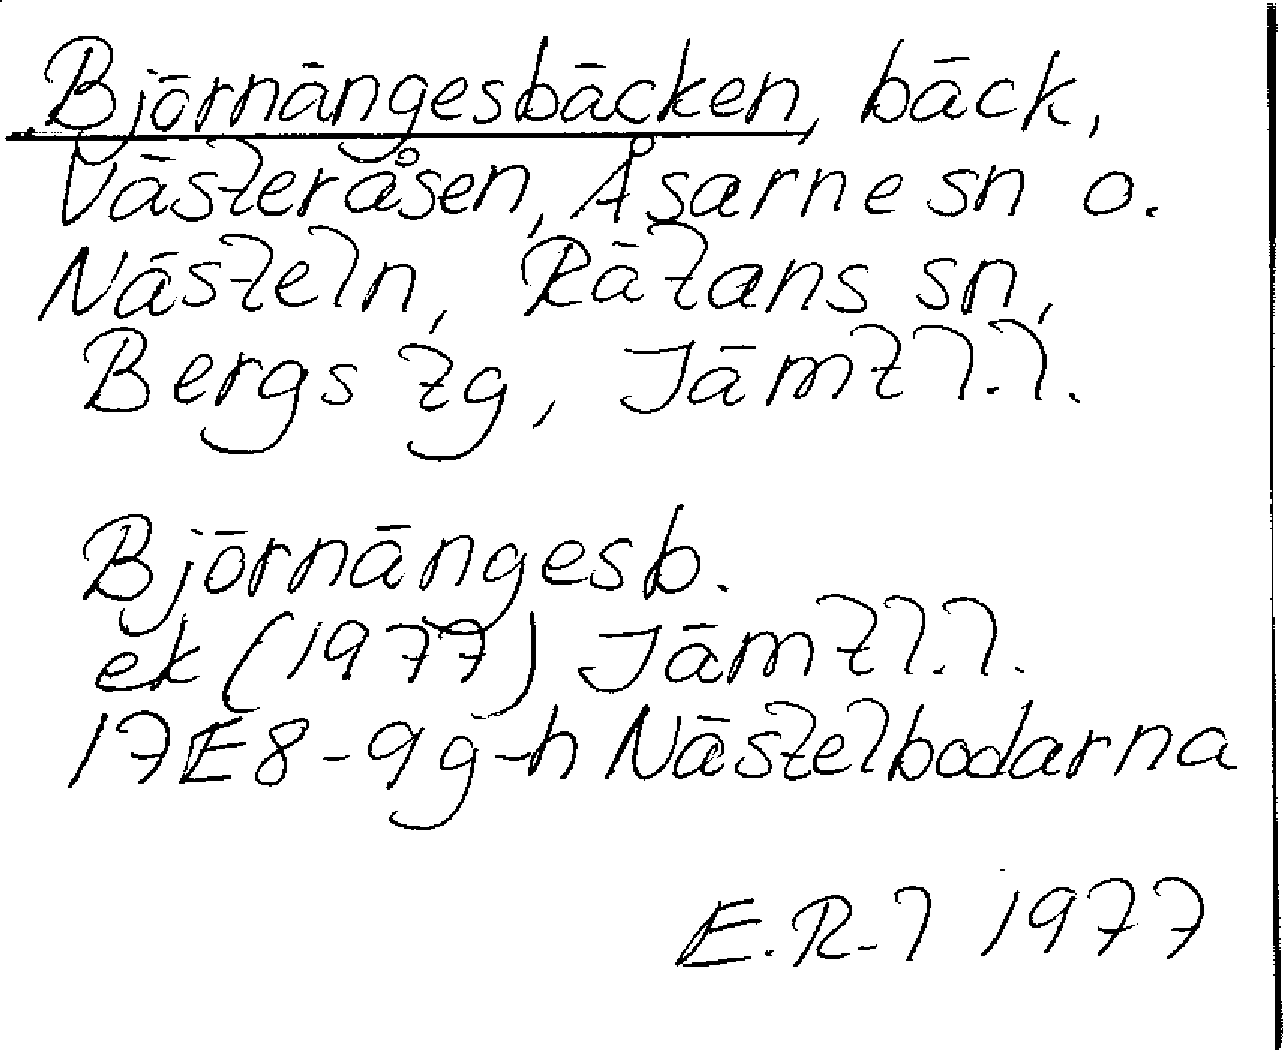 Björnängesbäcken, bäck,
Västeråsen, Åsarne sn o.
Nästeln, Rätans sn,
Bergs tg, Jämtl.l.
Björnängesb.
ek (1977) Jämtl.l.
17E8-9g-h Nästelbodarna
E.R-l 1977